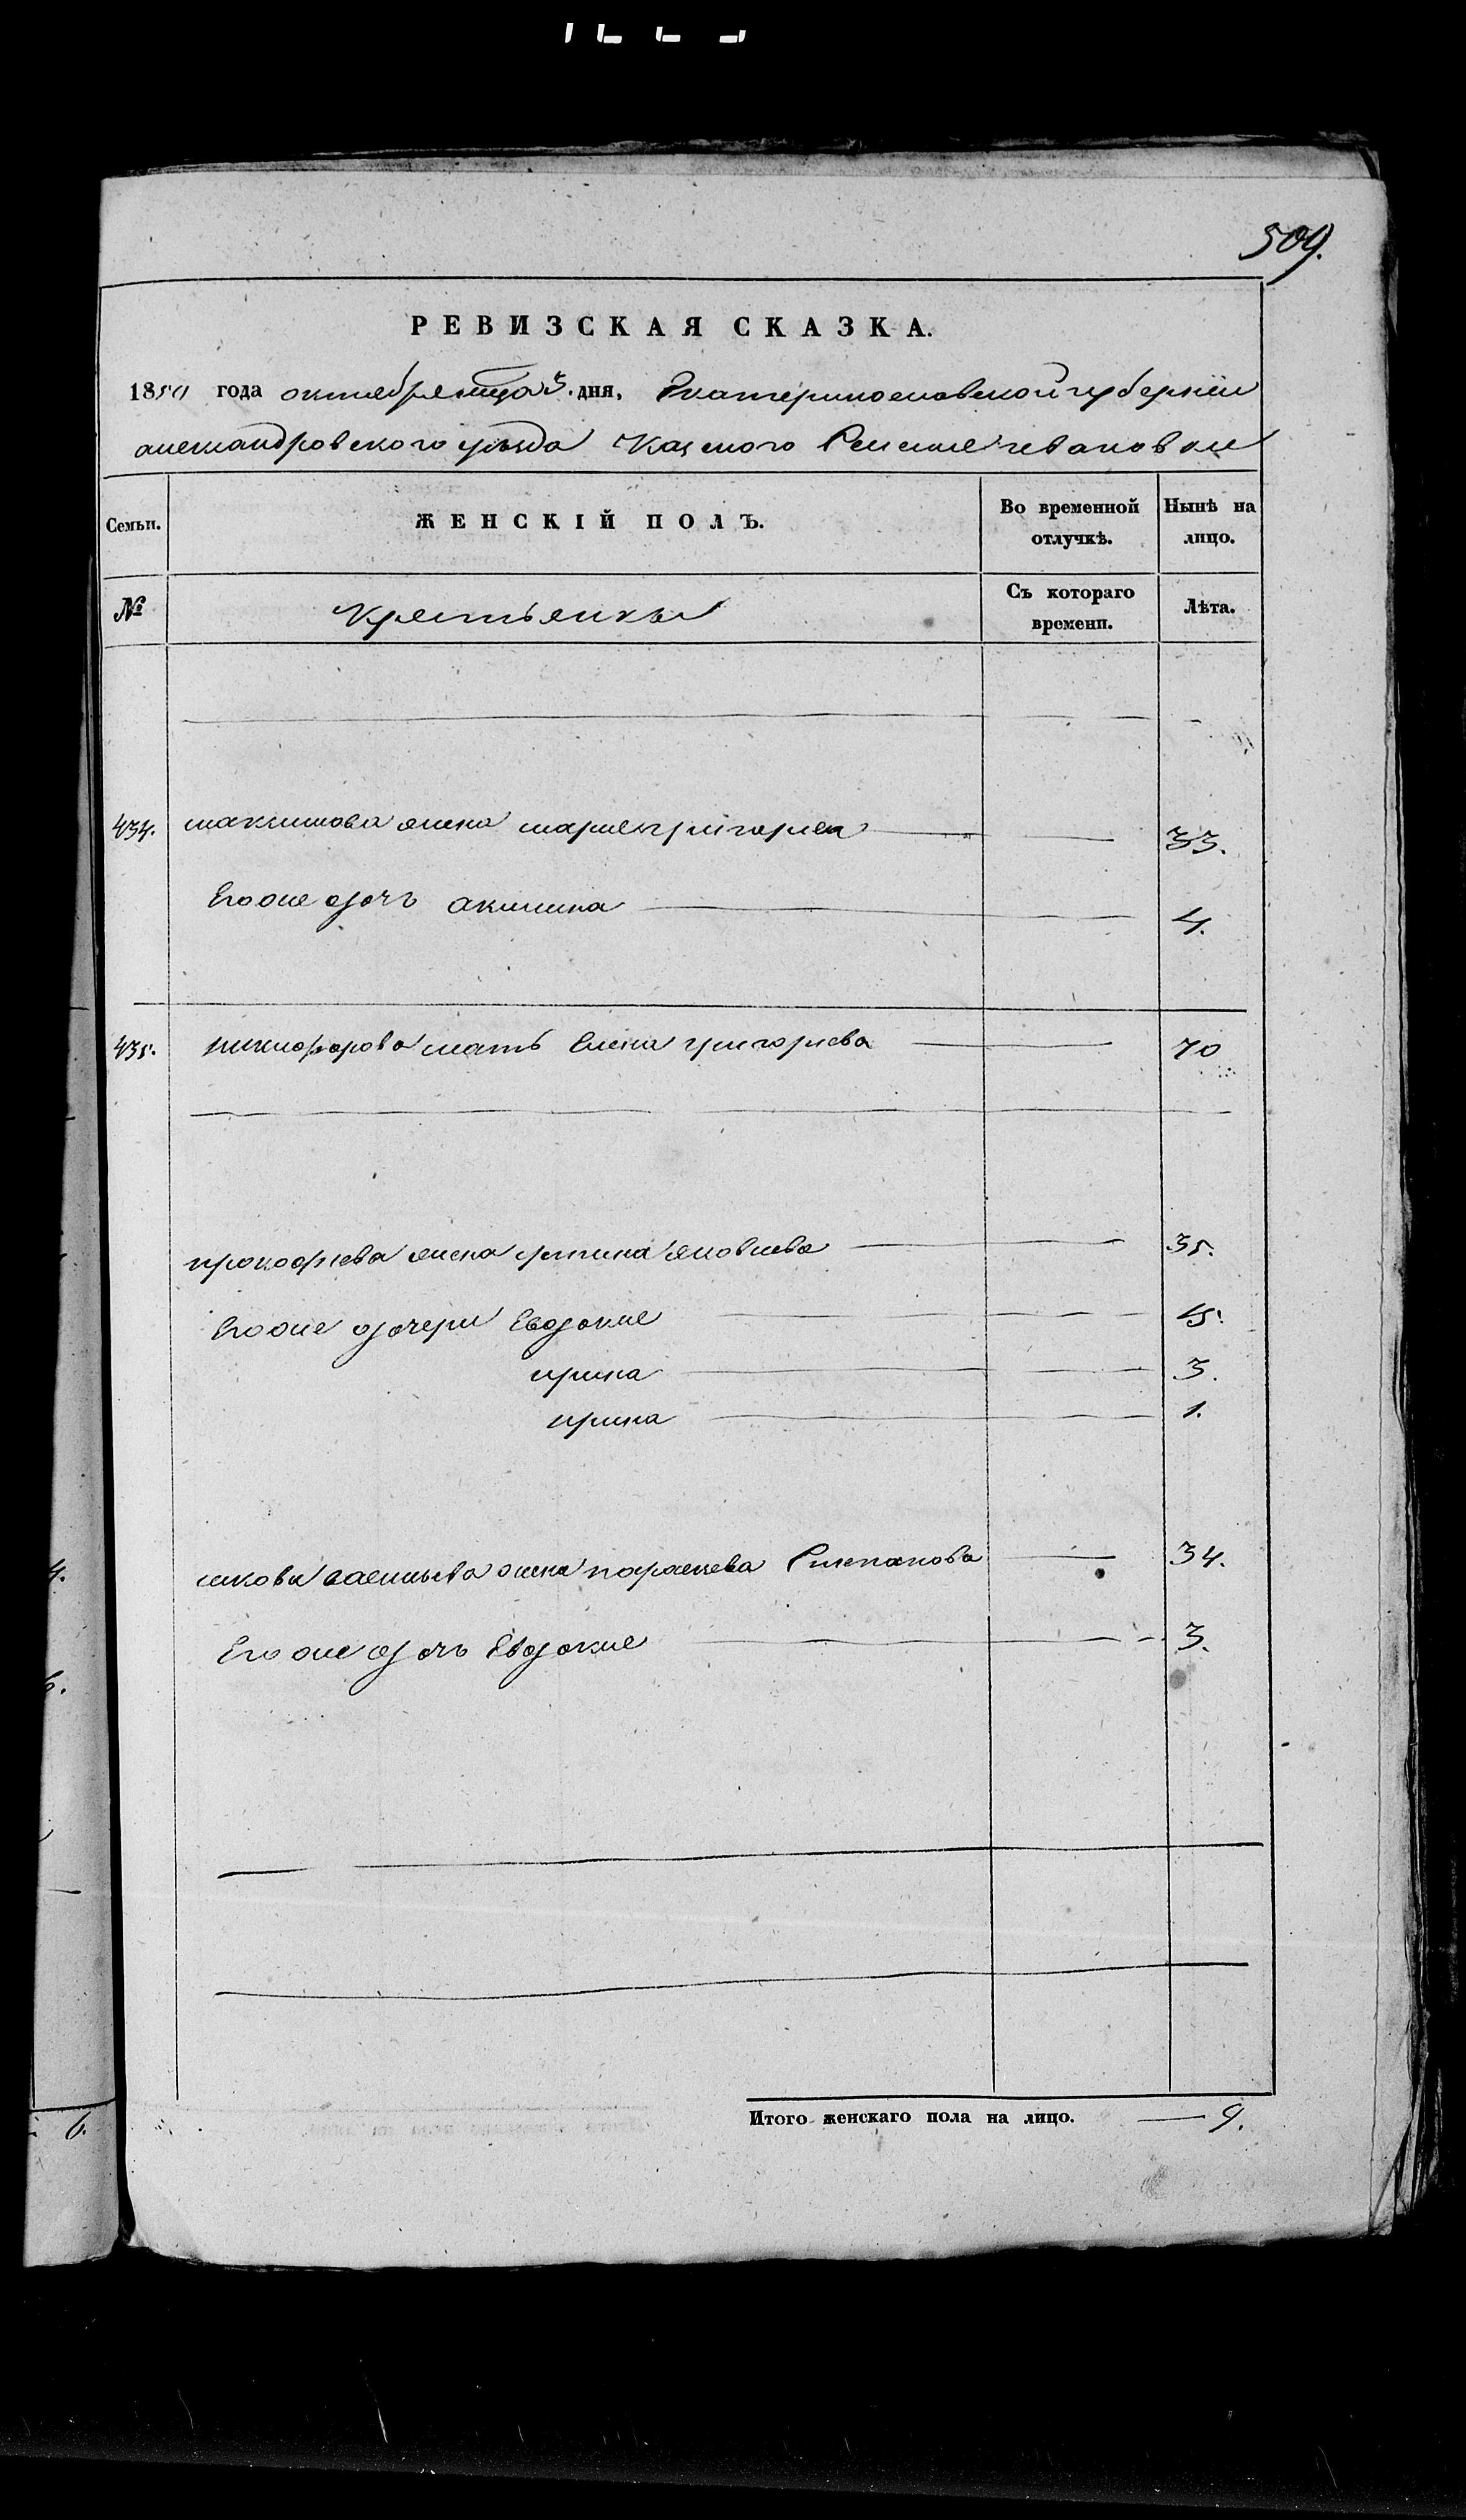 509.
РЕВИЗСКАЯ СКАЗКА.
1850 года октября месяца 3. дня, Екатеринославской губернии
александровского уезда Казенного Селения ивановки
Семьи. ЖЕНСКІЙ ПОЛЪ. Во временной отлучкѣ. Нынѣ на лицо.
№ Крестьянки Съ котораго времени. Лѣта.
434. максимова жена марие григориева 33.
Его же дочъ акилина 4.
435. никифорова мать Елена григориева 70
прокофиева жена ирина яковлева 35.
Его же дочери Евдокие 15.
ирина 3.
ирина 1.
васильева жена параскева Степанова 34.
Его же дочъ Евдокие 3.
Итого женскаго пола на лицо. 9.
4.
6.
6.